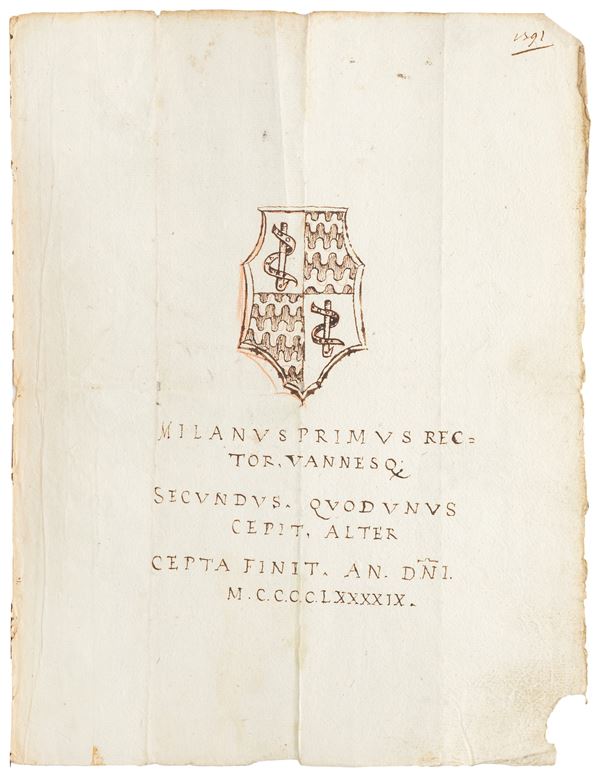 1591
MILANVS PRIMVS REC=
TOR. VANNESQ;
SECVNDVS. QVODVNVS
CEPIT. ALTER
CEPTA FINIT. AN. DÑI.
M.C.C.C.C.LXXXXIX.